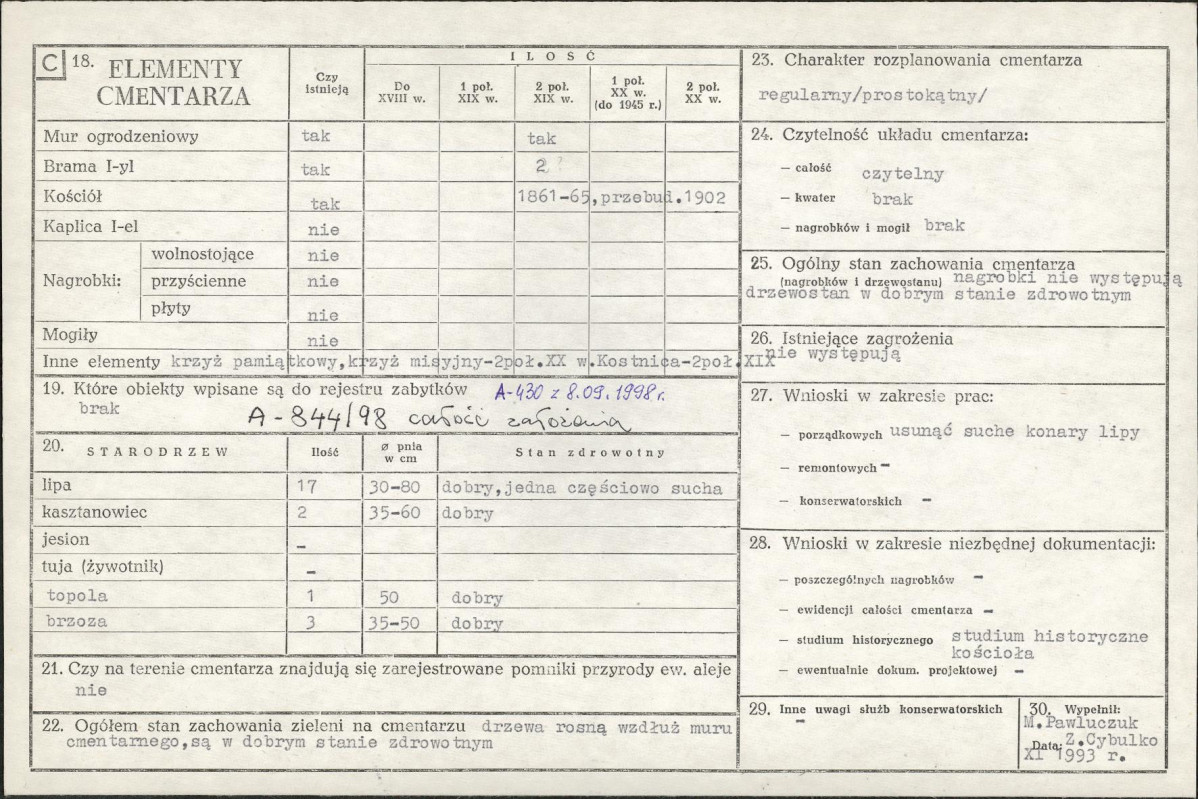 C 18. ELEMENTY CMENTARZA
Czy istnieją
ILOŚĆ
Do XVIII w.
1 poł. XIX w.
2 poł. XIX w.
1 poł. XX w. (do 1945 r.)
2 poł. XX w.
Mur ogrodzeniowy tak tak
Brama I-yl tak 2
Kościół tak 1861-65,przebud.1902
Kaplica I-el nie
Nagrobki: wolnostojące nie
przyścienne nie
płyty nie
Mogiły nie
Inne elementy krzyż pamiątkowy,krzyż misyjny-2poł.XX w.Kostnica-2poł.XIX
19. Które obiekty wpisane są do rejestru zabytków A-430 z 8.09.1998r.
brak A-844/98 całość założenia
20. STARODRZEW Ilość ø pnia w cm Stan zdrowotny
lipa 17 30-80 dobry,jedna częściowo sucha
kasztanowiec 2 35-60 dobry
jesion -
tuja (żywotnik) -
topola 1 50 dobry
brzoza 3 35-50 dobry
21. Czy na terenie cmentarza znajdują się zarejestrowane pomniki przyrody ew. aleje
nie
22. Ogółem stan zachowania zieleni na cmentarzu drzewa rosną wzdłuż muru
cmentarnego,są w dobrym stanie zdrowotnym
23. Charakter rozplanowania cmentarza
regularny/prostokątny/
24. Czytelność układu cmentarza:
– całość czytelny
– kwater brak
– nagrobków i mogił brak
25. Ogólny stan zachowania cmentarza
(nagrobków i drzewostanu) nagrobki nie występują
drzewostan w dobrym stanie zdrowotnym
26. Istniejące zagrożenia
nie występują
27. Wnioski w zakresie prac:
– porządkowych usunąć suche konary lipy
– remontowych -
– konserwatorskich -
28. Wnioski w zakresie niezbędnej dokumentacji:
– poszczególnych nagrobków -
– ewidencji całości cmentarza -
– studium historycznego studium historyczne
kościoła
– ewentualnie dokum. projektowej -
29. Inne uwagi służb konserwatorskich
-
30. Wypełnił:
M.Pawluczuk
Z.Cybulko
Data:
XI 1993 r.